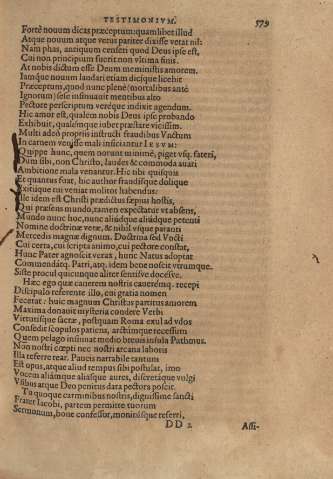 TESTIMONIVM. 579
Fortè nouum dicas præceptum: quam libet illud
Atque nouum atque vetus pariter dixisse vetat nil:
Nam phas, antiquum censeri quod Deus ipse est,
Cui non principium fuerit non vltima finis.
At nobis dictum esse Deum meministis amorem.
Iamque nouum laudari etiam dicique licebit
Præceptum, quod nunc plenè (mortalibus antè
Ignotum) sese insinuauit mentibus alto
Pectore perscriptum veréque indixit agendum.
Hic amor est, qualem nobis Deus ipse probando
Exhibuit, qualémque iubet præstare vicissim.
Multi adeò proprijs instructi fraudibus Vnctum
In carnem venisse mali insciantur IESVM:
Quippe hunc, quem norunt minimè, piget vsq. fateri,
Dum sibi, non Christo, laudes & commoda auari
Ambitione mala venantur. Hic tibi quisquis
Et quantus foat, hic author frandisque dolique
Exitiique cui veniat molitor habendus:
Hic idem est Christi prædictus sæpius hostis,
Qui præsens mundo, tamen expectatur vt absens,
Mundo nunc hoc, nunc aliúdque aliúdque petenti
Nomine doctrinæ veræ, & nihil vsque paranti
Mercedis magnæ dignum. Doctrina sed Vncti
Cui certa, cui scripta animo, cui pectore constat,
Hunc Pater agnoscit verax, hunc Natus adoptat
Commendátq. Patri, atq. idem bene noscit vtrumque.
Siste procul quicunque aliter sensisve docesve.
Hæc ego quæ canerem nostris cauerémq. recepi
Discipulo referente illo, cui gratia nomen
Fecerat: huic magnum Christus partitus amorem
Maxima donauit mysteria condere Verbi
Virtutisque sacræ, postquam Roma exul ad vdos
Consedit scopulos patiens, arctúmque recessum
Quem pelago insinuat medio breuis insula Pathmus.
Non nostri cœpti nec nostri arcana laboris
Illa referre rear. Paucis narrabile tantum
Est opus, atque aliud tempus sibi postulat, imo
Vocem aliámque aliasque aures, discretáque vulgi
Vsibus atque Deo penitus data pectora poscit.
Tu quoque carminibus nostris, dignissime sancti
Frater Iacobi, partem permitte tuorum
Sermonum, bone confessor, monitúsque referri,
DD 2. Assi-